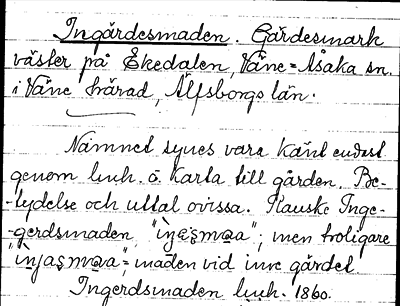 Ingärdesmaden. Gärdesmark
väster på Ekedalen, Väne=Åsaka sn.
i Väne härad, Älfsborgs län.
Namnet synes vara känt endast
genom luh. å karta till gården. Be-
-tydelse och uttal ovissa. Kanske Inge-
-gerdsmaden, men troligare
maden vid inre gärdet
Ingerdsmaden luh. 1860.